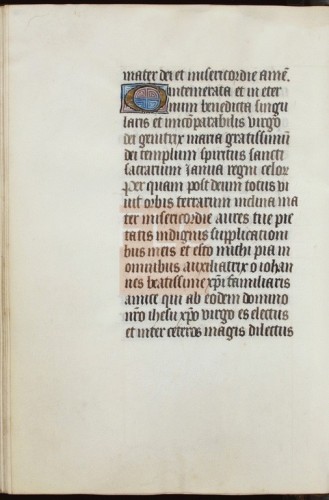 mater dei et misericordie amē.
O intemerata et in eter
num benedicta singu
laris et incōparabilis virgo
dei genitrix maria gratissimū
dei templum spiritus sancti
sacrarium ianua regni celor
per quam post deum totus vi
uit orbis terrarum inclina ma
ter misericordie aures tue pie
tatis indignis supplicationi
bus meis et esto michi pia in
omnibus auxiliatrix o iohan
nes beatissime xp̄i familiaris
amice qui ab eodem domino
nr̄o ihesu xp̄o virgo es electus
et inter ceteros magis dilectus